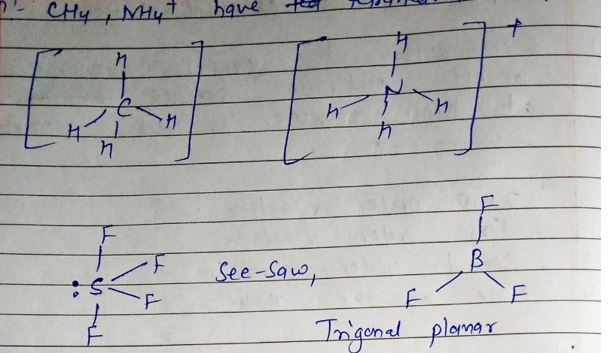 CH4, NH4+ have
H
C
H H
H
H +
N
H H
H
F
F
: S
F
F
See-Saw,
F
B
F F
Trigonal planar